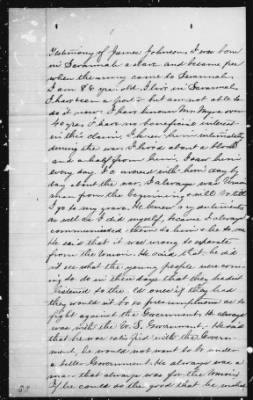 Testimony of James Johnson, I was born
in Savannah a slave and became free
when the army came to Savannah,
I am 86 years old I live in Savannah
I have been a porter but am not able to
do it now I have known Mr
40 years I have no beneficial interest
in this claim, I knew him intimately
during the war. I lived about a block
and a half from him, I saw him
every day I conversed with him day by
day about the war, I always was Union
man from the beginning & will be till
I go to my grave. He knew my sentiments
as well as I did myself, because I always
communicated them to him & he to me
He said that it was wrong to separate
from the Union. He said that he did
not see what the young people were going
to do in these days that they hadn't
listened to the old ones if they had
they would not be so presumptious as to
fight against the Government. He always
was with the U.S. Government. He said
that he was satisfied with the Govern-
ment, he would not want to be under
a better Government. He always was a
man that always was for the Union
If he could do the good that he wished